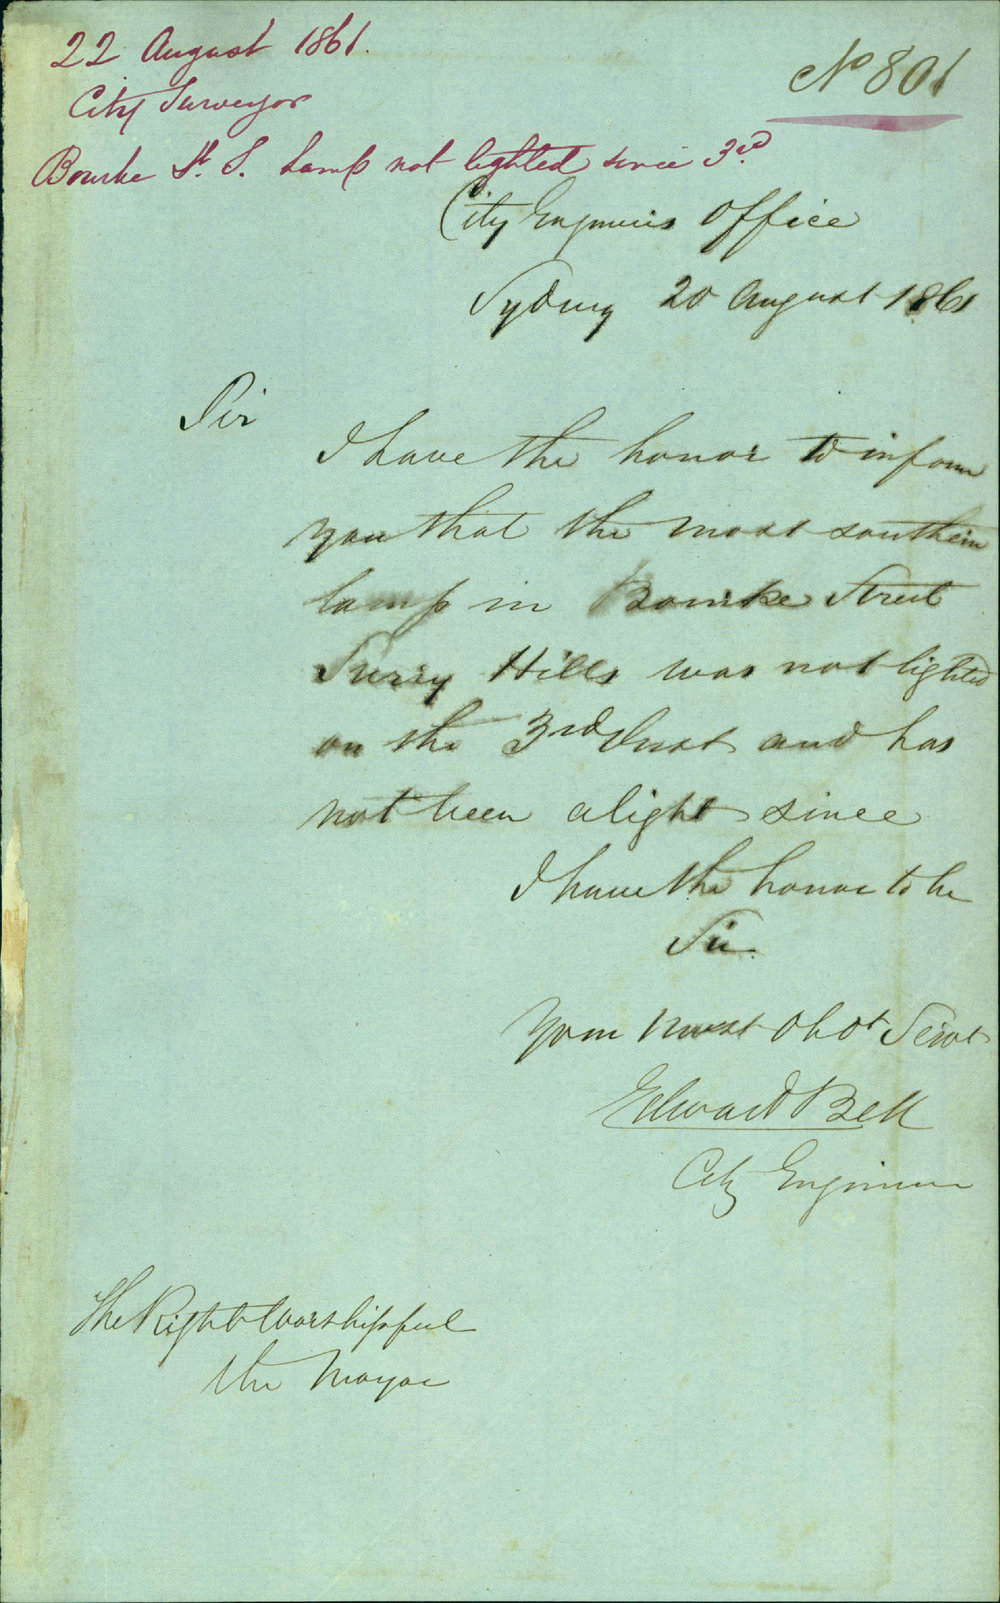 22 August 1861.
City Surveyor
Bourke St. S. Lamp not lighted since 3rd.
No 801
City Engineers Office
Sydney 20 August 1861
Sir
I have the honor to inform
you that the most southern
lamp in Bourke Street
Surry Hills was not lighted
on the 3rd Inst and has
not been alight since
I have the honor to be
Sir.
Your most Obdt Servt
Edward Bell
City Engineer
The Right Worshipful
the Mayor